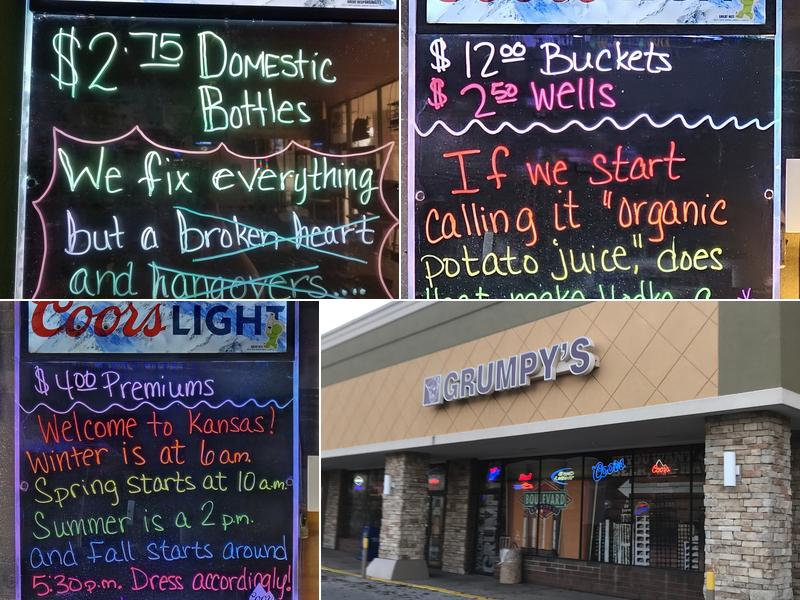 $2.75 Domestic
Bottles
We fix everything
but a broken heart
and hangovers....
$12.00 Buckets
$2.50 Wells
If we start
calling it "organic
potato juice," does
that make Vodka a
Coors LIGHT
$4.00 Premiums
Welcome to Kansas!
Winter is at 6am.
Spring starts at 10 a.m.
Summer is a 2 p.m.
and Fall starts around
5:30p.m. Dress accordingly!
GRUMPY'S
BOULEVARD
Coors